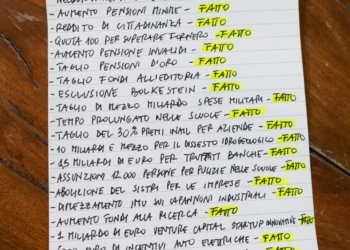 - AUMENTO PENSIONI MINIME - FATTO
- REDDITO DI CITTADINANZA - FATTO
- QUOTA 100 PER SUPERARE FORNERO - FATTO
- AUMENTO PENSIONE INVALIDI - FATTO
- TAGLIO PENSIONI D'ORO - FATTO
- TAGLIO FONDI ALL'EDITORIA - FATTO
- ESCLUSIONE BOLKESTEIN - FATTO
- TAGLIO DI MEZZO MILIARDO SPESE MILITARI - FATTO
- TEMPO PROLUNGATO NELLE SCUOLE - FATTO
- TAGLIO DEL 30% PREMI INAIL PER AZIENDE - FATTO
- 10 MILIARDI E MEZZO PER IL DISSESTO IDROGEOLOGICO - FATTO
- 1,5 MILIARDI DI EURO PER TRUFFATI BANCHE - FATTO
- ASSUNZIONI 12.000 PERSONE PER PULIZIE NELLE SCUOLE - FATTO
- ABOLIZIONE DEL SISTRI PER LE IMPRESE - FATTO
- DIMEZZAMENTO IMU SUI CAPANNONI INDUSTRIALI - FATTO
- AUMENTO FONDI ALLA RICERCA - FATTO
- 1 MILIARDO DI EURO VENTURE CAPITAL STARTUP INNOVATIVE - FATTO
EURO DI INCENTIVI AUTO ELETTRICHE - FATTO